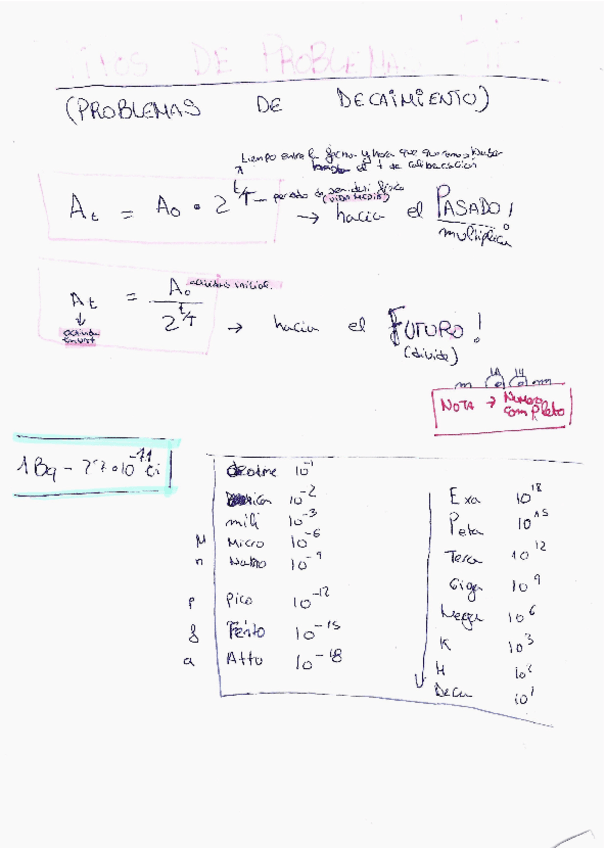 DE PROBLEMAS
(PROBLEMAS DE DECAIMIENTO)
tiempo entre la fecha y hora que queremos
el t de calibración
At = A0 • 2^t/T
(vida media)
→ hacia el PASADO!
multiplica
At = A0 / 2^t/T
actividad inicial
→ hacia el FUTURO!
(divide)
NOTA → Numero
completo
1 Bq - 27•10^-11 Ci
10^-1
10^-2
mili 10^-3
M Micro 10^-6
n Nano 10^-9
p Pico 10^-12
f Femto 10^-15
a Atto 10^-18
Exa 10^18
Peta 10^15
Tera 10^12
Giga 10^9
Mega 10^6
K 10^3
H
Deca 10^1